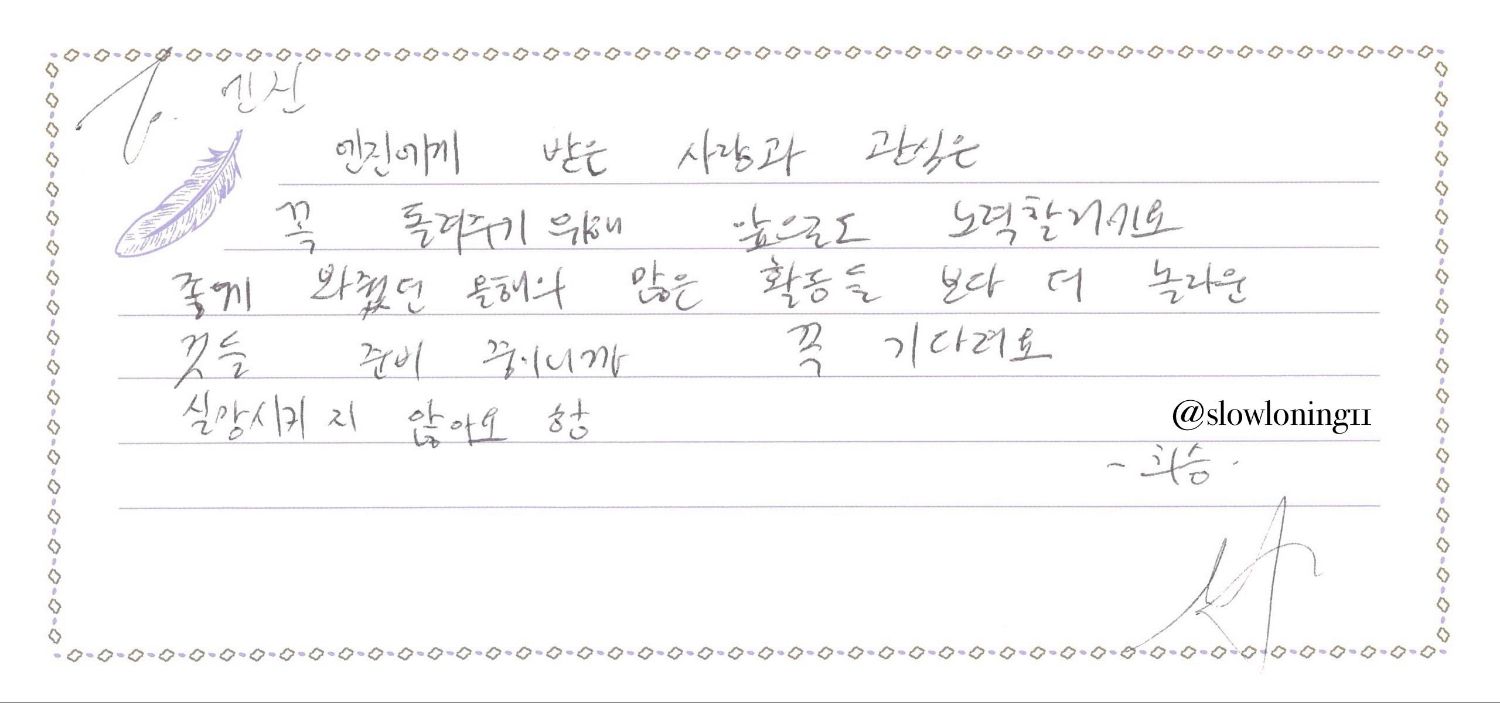 To. 엔진
엔진에게 받은 사랑과 관심은
꼭 돌려주기 위해 앞으로도 노력할거에요
좋게 봐줬던 올해의 많은 활동들 보다 더 놀라운
것들 준비 중이니까 꼭 기다려요
실망시키지 않아요 항
@slowloning11
- 희승 -